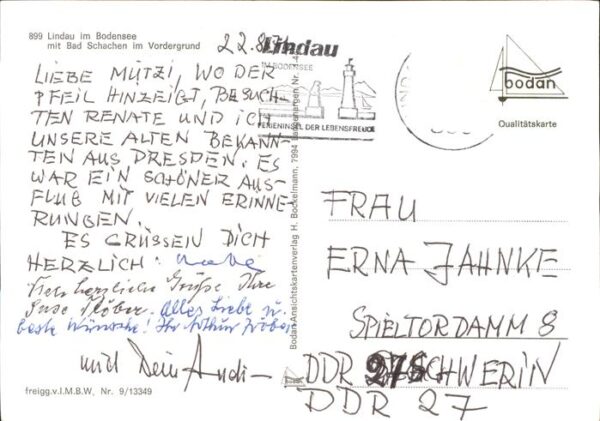 899 Lindau im Bodensee
mit Bad Schachen im Vordergrund
22.8.74
Lindau
IM BODENSEE
FERIENINSEL DER LEBENSFREUDE
bodan
Qualitätskarte
LIEBE MUTZI, WO DER
PFEIL HINZEIGT, BESUCH-
TEN RENATE UND ICH
UNSERE ALTEN BEKANN-
TEN AUS DRESDEN. ES
WAR EIN SCHÖNER AUS-
FLUG MIT VIELEN ERINNE-
RUNGEN.
ES GRÜSSEN DICH
HERZLICH:
herzliche Grüße Ihre
Suse Flöber. Alles Liebe u.
beste Wünsche! Ihr Arthur
und Dein Andi-
freigg.v.I.M.B.W, Nr. 9/13349
Bodan-Ansichtskartenverlag H. Bockelmann, 7994 Langenargen Nr.
FRAU
ERNA JAHNKE
SPIELTORDAMM 8
DDR 27 SCHWERIN
DDR 27